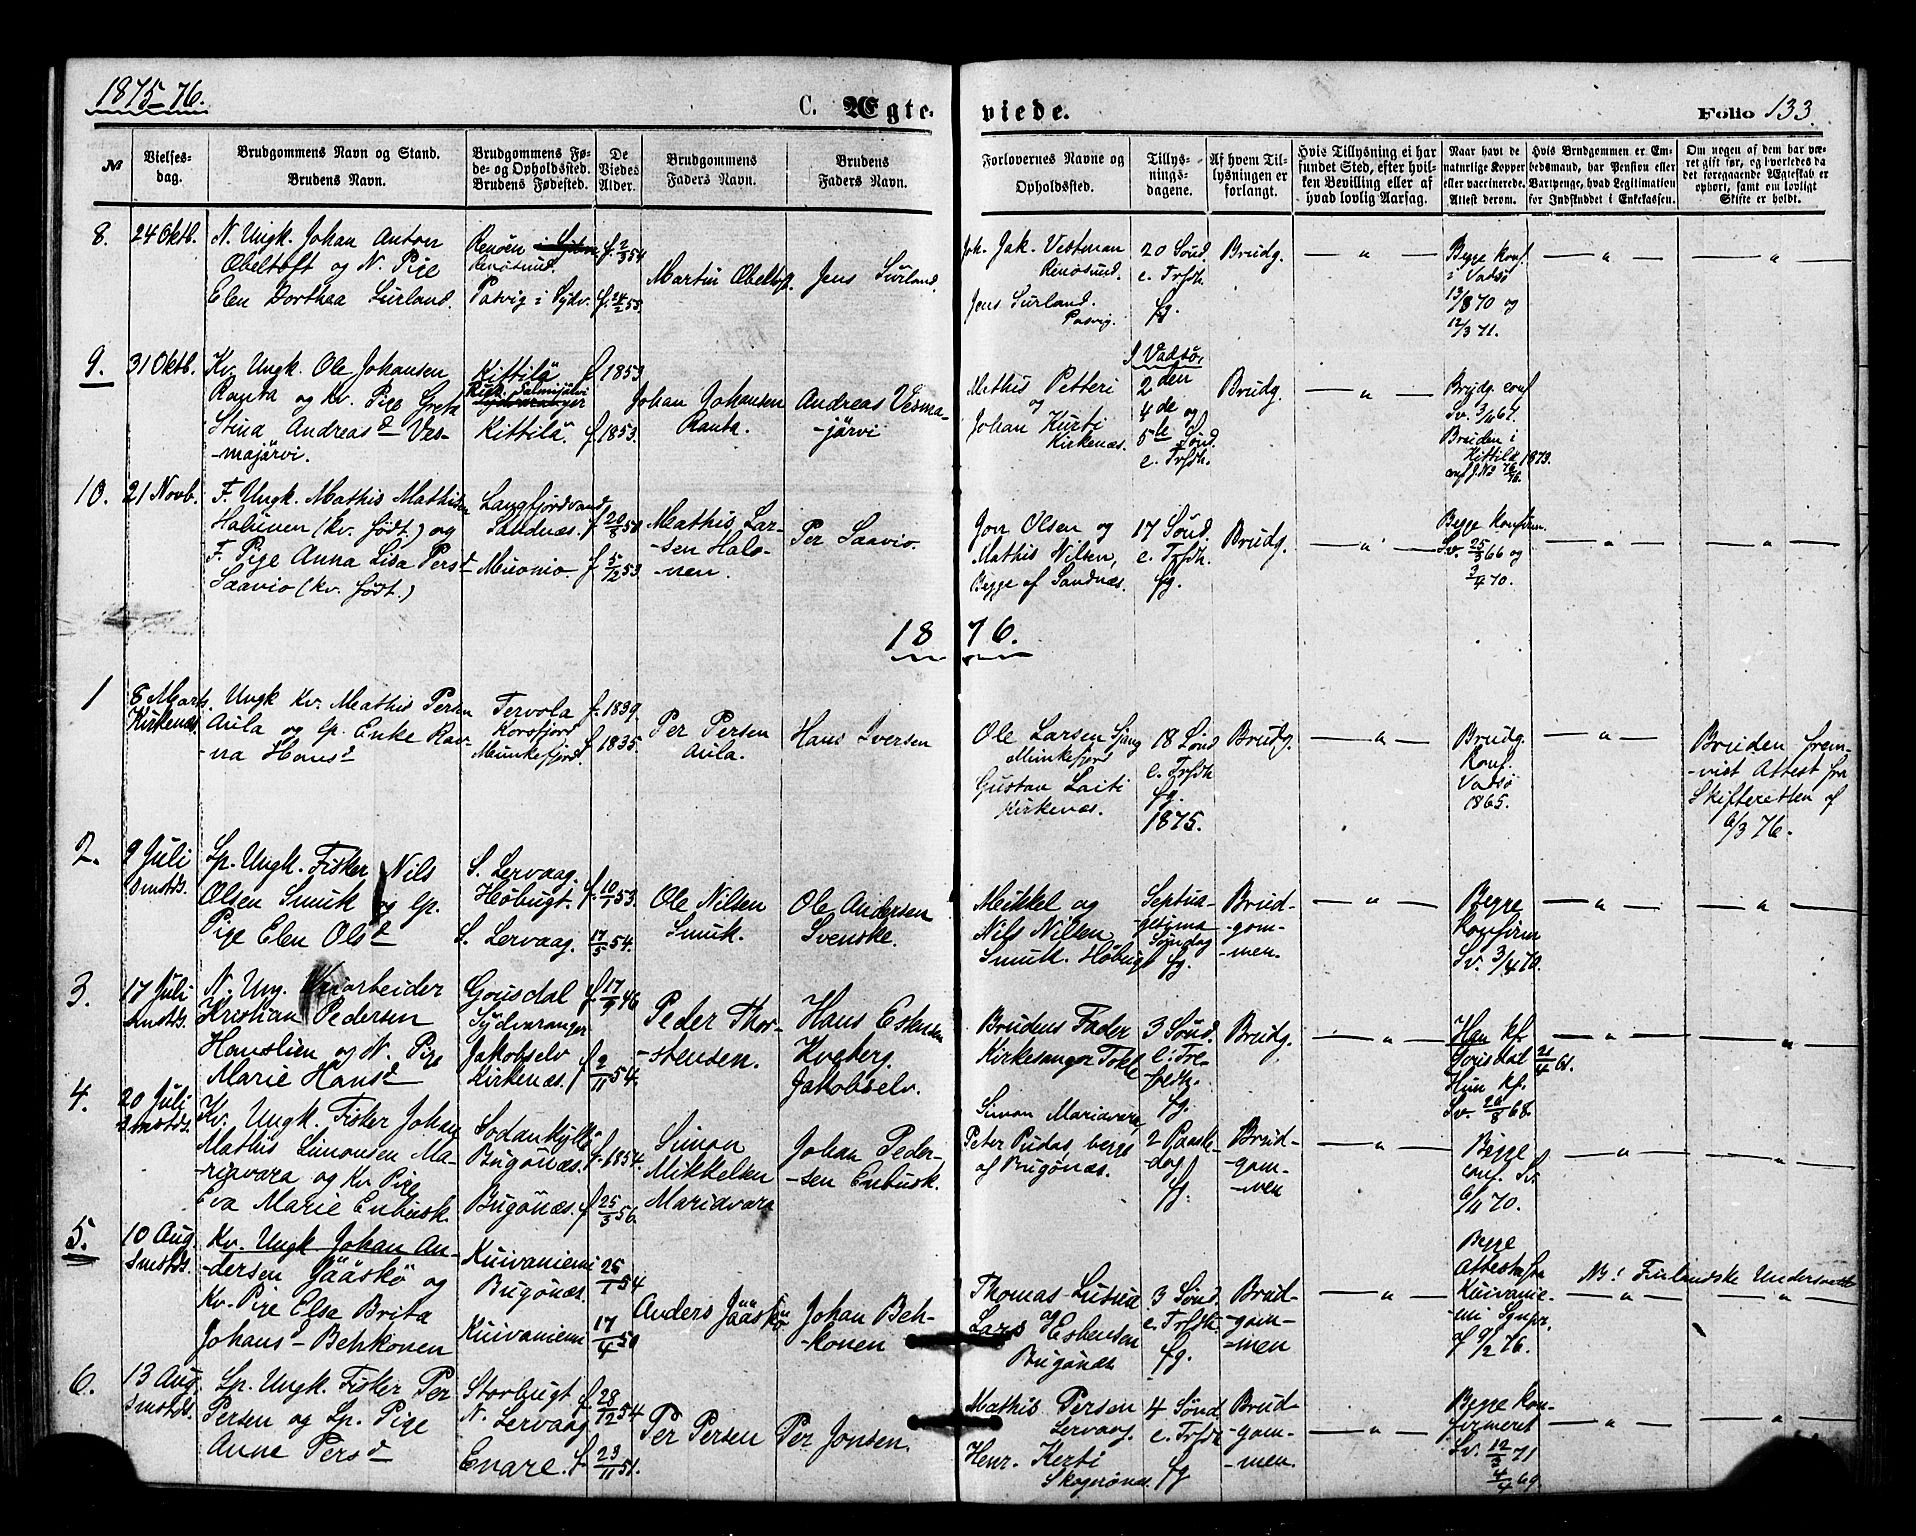 1875-76.
C. Ægteviede.
Folio 133.
№
Vielsesdag.
Brudgommens Navn og Stand.
Brudens Navn.
Brudgommens Føde- og Opholdssted.
Brudens Fødested.
De Viedes Alder.
Brudgommens Faders Navn.
Brudens Faders Navn.
Forlovernes Navne og Opholdssted.
Tillysningsdagene.
Af hvem Tillysningen er forlangt.
Hvis Tillysning ei har fundet Sted, efter hvilken Bevilling eller af hvad lovlig Aarsag.
Naar havt de naturlige Kopper eller vaccinerede. Attest derom.
Hvis Brudgommen er Embedsmand, har Pension eller Vartpenge, hvad Legitimation for Indskuddet i Enkekassen.
Om nogen af dem har været gift før, og hvorledes da det foregaaende Ægteskab er ophørt, samt om lovligt Skifte er holdt.
8.
24 Oktb.
N. Ungk. Johan Anton
Øbeltoft og N. Pige
Elen Dorthea Surland.
Renöen
Renösund.
Pasvig i Sydv.
f. 2/3 54
f. 24/2 53.
Martin Øbeltof.
Jens Surland.
Joh. Jak. Vestman
Renösund.
Jens Surland.
Pasvig.
20 Sønd.
e. Trfdh.
fg.
Brudg.
Begge Konf.
i Vadsö
13/8 70 og
12/3 71.
9.
31 Oktb.
Kv. Ungk. Ole Johansen
Ranta og Kv. Pige Greta
Stina Andreasd Ves-
-majärvi.
Kittilä
Salmijälvi
Kittilä.
f 1853
f. 1853.
Johan Johansen
Ranta.
Andreas Vesma-
-järvi
Mathis Petteri
og
Johan Kurti
Kirkenæs.
I Vadsø,
2den
4de og
5te Sønd.
e. Trfdh.
Brudg.
Brudg. conf.
Sv. 3/11 67.
Bruden i
Kittilä 1873.
10.
21 Novb.
F. Ungk. Mathis Mathisen
Halonen (kv. født.) og
F. Pige Anna Lisa Persd
Saavio (kv. født.)
Langfjordvand
Sandnæs.
Muonio.
f. 20/8 50
f. 5/12 53
Mathis Lar-
-sen Halo-
-nen.
Per Saavio.
Jon Olsen og
Mathis Nilsen,
Begge af Sandnæs.
17 Sønd.
e. Trfdh.
fg.
Brudg.
Begge Konfirm.
Sv. 25/3 66 og
3/4 70.
1876.
1
8 Marts.
Kirkenæs
Ungk Kv. Mathis Persen
Aula og lp. Enke Rav-
-na Hansd
Tervola
Korsfjord
Munkefjord.
f. 1839.
f. 1835.
Per Persen
Aula.
Hans Iversen
Ole Larsen
Munkefjord
Gustav Laiti
Kirkenæs.
18 Sønd
e. Trfdh
fg.
1875.
Brudg.
Brudg.
Konf.
Vadsø
1865.
Bruden frem-
-vist Attest fra
Skifteretten af
6/3 76.
2.
9 Juli
Smstds.
Lp. Ungk. Fisker Nils
Olsen Smuk og lp.
Pige Elen Olsd
S. Lervaag.
Høbugt.
S. Lervaag.
f. 10/1 53.
17/5 54.
Ole Nilsen
Smuk.
Ole Andersen
Svenske.
Mikkel og
Nils Nilsen
Smuk. Høbugt
Septua-
gesima
Søndag
fg.
Brud-
-gom-
-men.
Begge
Konfirm
Sv. 3/4 70.
3.
17 Juli
Smstds.
N. Ung. Veiarbeider
Kristian Pedersen
Hanslien og N. Pige
Marie Hansd
Gousdal
Sydvaranger
Jakobselv
Kirkenæs.
f 17/9 46
f 2/11 54.
Peder Thor-
-stensen.
Hans Estensen
Kveberg.
Jakobselv.
Brudens Fader
Kirkesanger Tokle
3 Sønd.
e. Tre-
-foldh.
fg.
Brudg.
Han Kf.
21/4 61.
Hun kf.
Sv. 20/8 68.
4.
20 Juli
Smstds.
Kv. Ungk. Fisker Johan
Mathis Simonsen Ma-
-riavara og Kv. Pige
Eva Marie Enbusk.
Sodankylä
Bugönæs.
Bugönæs.
f. 1854.
f 25/3 56.
Simon
Mikkelsen
Mariavara
Johan Peder-
-sen Enbusk.
Simon Mariavara,
Peter Pudas, begge
af Bugönæs.
2 Paaske-
-dag
fg.
Brud-
-gom-
-men
Begge
conf. Sv.
6/11 70.
5.
10 Aug
Smstds.
Kv. Ungk Johan An-
-dersen Jääskö og
Kv. Pige Else Brita
Johansd Behkonen
Kuivaniemi
Bugönæs.
Kuivaniemi
25/1 54
17/4 50
Anders Jääskö
Johan Beh-
-konen
Thomas
og
Lars Esbensen
Bugönæs
3 Sønd.
e. Trfdh.
fg.
Brud-
-gom-
-men
Begge
Attester fra
Kuivanie-
-mi
af 9/2 76.
NB! Finlandske Undersaatter
6.
13 Aug
Smstds.
Lp. Ungk. Fisker Per
Persen og Lp. Pige
Anne Persd
Storbugt
N. Lervaag
Enare.
f. 28/12 54
f. 23/11 51.
Per Persen
Per Jonsen.
Mathis Persen
Lervaag.
Henr. Kerti
Skogerönæs.
4 Sønd.
e. Trfdh
fg
Brud-
-gom-
-men.
Begge Kon-
firmeret
Sv. 12/3 71
4/4 69.